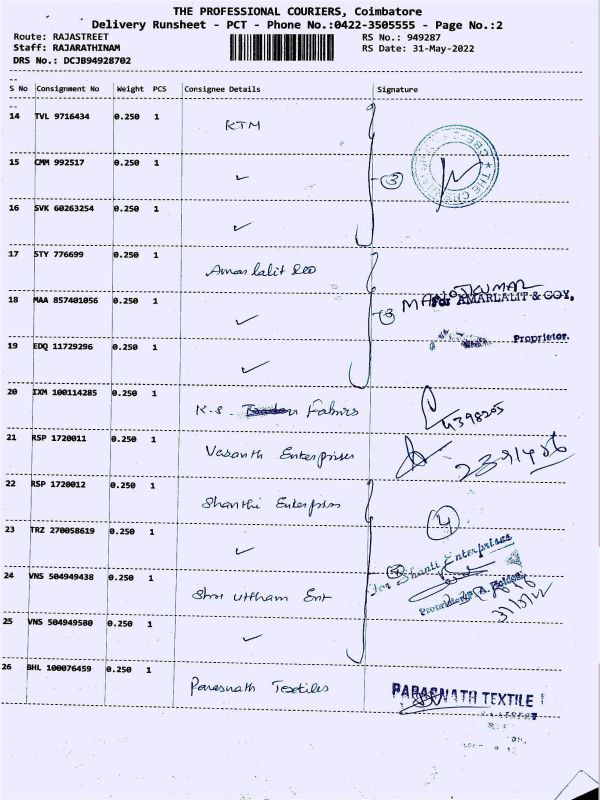 THE PROFESSIONAL COURIERS, Coimbatore
Delivery Runsheet - PCT - Phone No.:0422-3505555 - Page No.:2
Route: RAJASTREET RS No.: 949287
Staff: RAJARATHINAM RS Date: 31-May-2022
DRS No.: DCJB94928702
S No Consignment No Weight PCS Consignee Details Signature
14 TVL 9716434 0.250 1 KTM
15 CMM 992517 0.250 1 ✓ 3
16 SVK 60263254 0.250 1 ✓
17 STY 776699 0.250 1 Amar lalit
18 MAA 857401056 0.250 1 ✓ 3 MANOJKUMAR
For AMARLALIT & GOY,
Proprietor.
19 EDQ 11729296 0.250 1 ✓
20 IXM 100114285 0.250 1 K.S. Fabrics 4398205
21 RSP 1720011 0.250 1 Vasanth Enterprises 2391486
22 RSP 1720012 0.250 1 Shanthi Enterprises 4
23 TRZ 270058619 0.250 1 ✓
For Shanti Enterprises
24 VNS 504949438 0.250 1 Shri uttham Ent
31/5/22
25 VNS 504949580 0.250 1 ✓
26 BHL 100076459 0.250 1 Parasnath Textiles PARASNATH TEXTILE